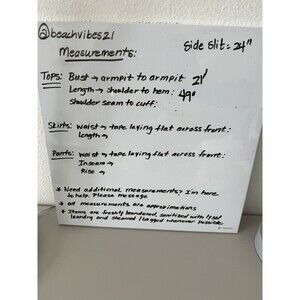 @beachvibes21
Measurements:
Side Slit = 24"
Tops: Bust → armpit to armpit 21"
Length → shoulder to hem: 49"
Shoulder seam to cuff:
Skirts: Waist → tape laying flat across front:
Length →
Pants: Waist → tape laying flat across front:
Inseam →
Rise →
* Need additional measurements? I'm here
to help. Please message.
* All measurements are approximations
* Items are freshly laundered, sanitized with lysol
laundry and steamed / bagged whenever possible.